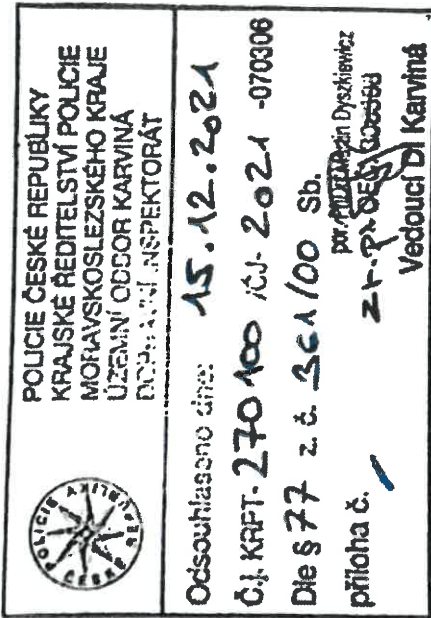 POLICIE ČESKÉ REPUBLIKY
KRAJSKÉ ŘEDITELSTVÍ POLICIE
MORAVSKOSLEZSKÉHO KRAJE
ÚZEMNÍ ODBOR KARVINÁ
DOPRAVNÍ INSPEKTORÁT
POLICIE ČESKÉ REPUBLIKY
Odsouhlaseno dne: 15.12.2021
Č.j. KRPT-270100/ČJ-2021-070306
Dle § 77 z. č. 361/00 Sb.
příloha č. /
Dyszkiewicz
Vedoucí DI Karviná